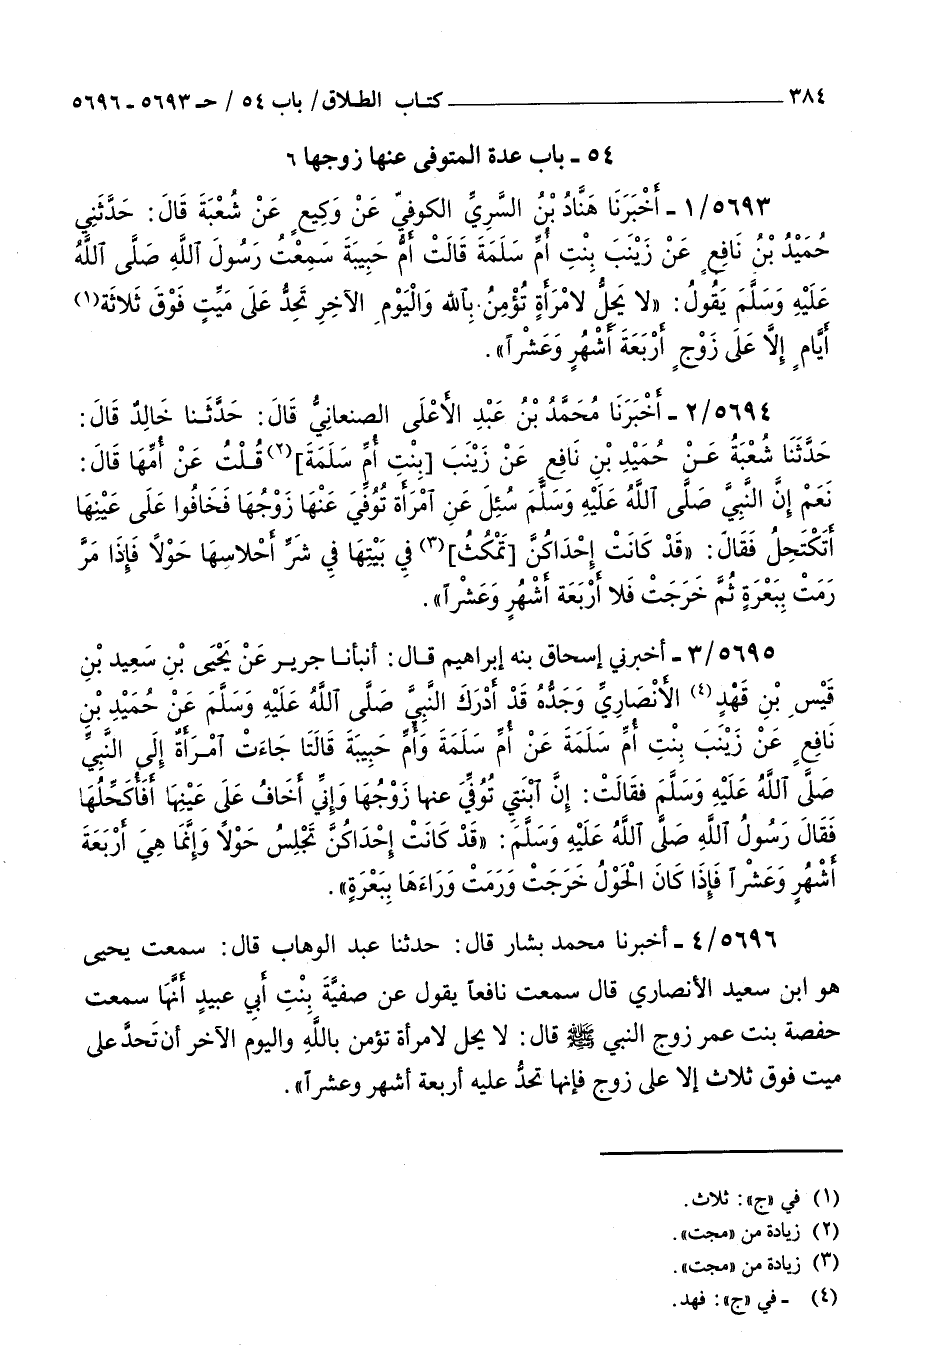 ٣٨٤ ــــــ كتاب الطلاق/ باب ٥٤ / حـ ٥٦٩٣ ـ ٥٦٩٦
٥٤ ـ باب عدة المتوفى عنها زوجها ٦
١/٥٦٩٣ ـ أَخْبَرَنَا هَنَّادُ بْنُ السَّرِيِّ الكوفيّ عَنْ وَكِيعٍ عَنْ شُعْبَةَ قَالَ: حَدَّثَنِي
حُمَيْدُ بْنُ نَافِعٍ عَنْ زَيْنَبَ بِنْتِ أُمِّ سَلَمَةَ قَالَتْ أُمُّ حَبِيبَةَ سَمِعْتُ رَسُولَ اللَّهِ صَلَّى اللَّهُ
عَلَيْهِ وَسَلَّمَ يَقُولُ: «لا يَحِلُّ لامْرَأَةٍ تُؤْمِنُ بِالله وَالْيَوْمِ الآخِرِ تَحِدُّ عَلَى مَيِّتٍ فَوْقَ ثَلاثَة(١)
أَيَّامٍ إِلَّا عَلَى زَوْجٍ أَرْبَعَةَ أَشْهُرٍ وَعَشْراً».
٢/٥٦٩٤ ـ أَخْبَرَنَا مُحَمَّدُ بْنُ عَبْدِ الأَعْلَى الصنعانيُّ قَالَ: حَدَّثَنا خَالِدٌ قَالَ:
حَدَّثَنَا شُعْبَةُ عَنْ حُمَيْدِ بْنِ نَافِعٍ عَنْ زَيْنَبَ [بِنْتِ أُمِّ سَلَمَةَ](٢) قُلْتُ عَنْ أُمِّهَا قَالَ:
نَعَمْ إِنَّ النَّبِيَّ صَلَّى اللَّهُ عَلَيْهِ وَسَلَّمَ سُئِلَ عَنِ امْرَأَة تُوُفِّيَ عَنْهَا زَوْجُهَا فَخَافُوا عَلَى عَيْنِهَا
أَتَكْتَحِلُ فَقَالَ: «قَدْ كَانَتْ إِحْدَاكُنَّ [تَمْكُثُ](٣) فِي بَيْتِهَا فِي شَرِّ أَحْلاسِهَا حَوْلاً فَإِذَا مَرَّ
رَمَتْ بِبَعْرَةٍ ثُمَّ خَرَجَتْ فَلا أَرْبَعَة أَشْهُرٍ وَعَشْراً».
٣/٥٦٩٥ ـ أخبرني إسحاق بنه إبراهيم قال: أنبأنا جرير عَنْ يَحْيَى بْنِ سَعِيد بْنِ
قَيْسِ بْنِ قَهْدٍ(٤) الأَنْصَارِيِّ وَجَدُّهُ قَدْ أَدْرَكَ النَّبِيَّ صَلَّى اللَّهُ عَلَيْهِ وَسَلَّمَ عَنْ حُمَيْدِ بْنِ
نَافِعٍ عَنْ زَيْنَبَ بِنْتِ أُمِّ سَلَمَةَ عَنْ أُمِّ سَلَمَةَ وَأُمِّ حَبِيبَةَ قَالَتَا جَاءَتْ امْرَأَةٌ إِلَى النَّبِيِّ
صَلَّى اللَّهُ عَلَيْهِ وَسَلَّمَ فَقَالَتْ: إِنَّ ابْنَتِي تُوُفِّيَ عنها زَوْجُهَا وَإِنِّي أَخَافُ عَلَى عَيْنِهَا أَفَأُكَحِّلُهَا
فَقَالَ رَسُولُ اللَّهِ صَلَّى اللَّهُ عَلَيْهِ وَسَلَّمَ: «قَدْ كَانَتْ إِحْدَاكُنَّ تَجْلِسُ حَوْلاً وَإِنَّمَا هِيَ أَرْبَعَةَ
أَشْهُرٍ وَعَشْراً فَإِذَا كَانَ الْحَوْلُ خَرَجَتْ وَرَمَتْ وَرَاءَهَا بِبَعْرَةٍ».
٤/٥٦٩٦ ـ أخبرنا محمد بشار قال: حدثنا عبد الوهاب قال: سمعت يحيى
هو ابن سعيد الأنصاري قال سمعت نافعاً يقول عن صفيَّةَ بِنْتِ أبي عبيدٍ أنَّهَا سمعت
حفصة بنت عمر زوج النبي ﷺ قال: لا يحل لامرأة تؤمن باللَّهِ واليوم الآخر أن تَحدَّ على
ميت فوق ثلاث إلا على زوج فإنها تحدُّ عليه أربعة أشهر وعشراً».
(١) في «ج»: ثلاث.
(٢) زيادة من «مجت».
(٣) زيادة من «مجت».
(٤) ـ في «ج»: فهد.